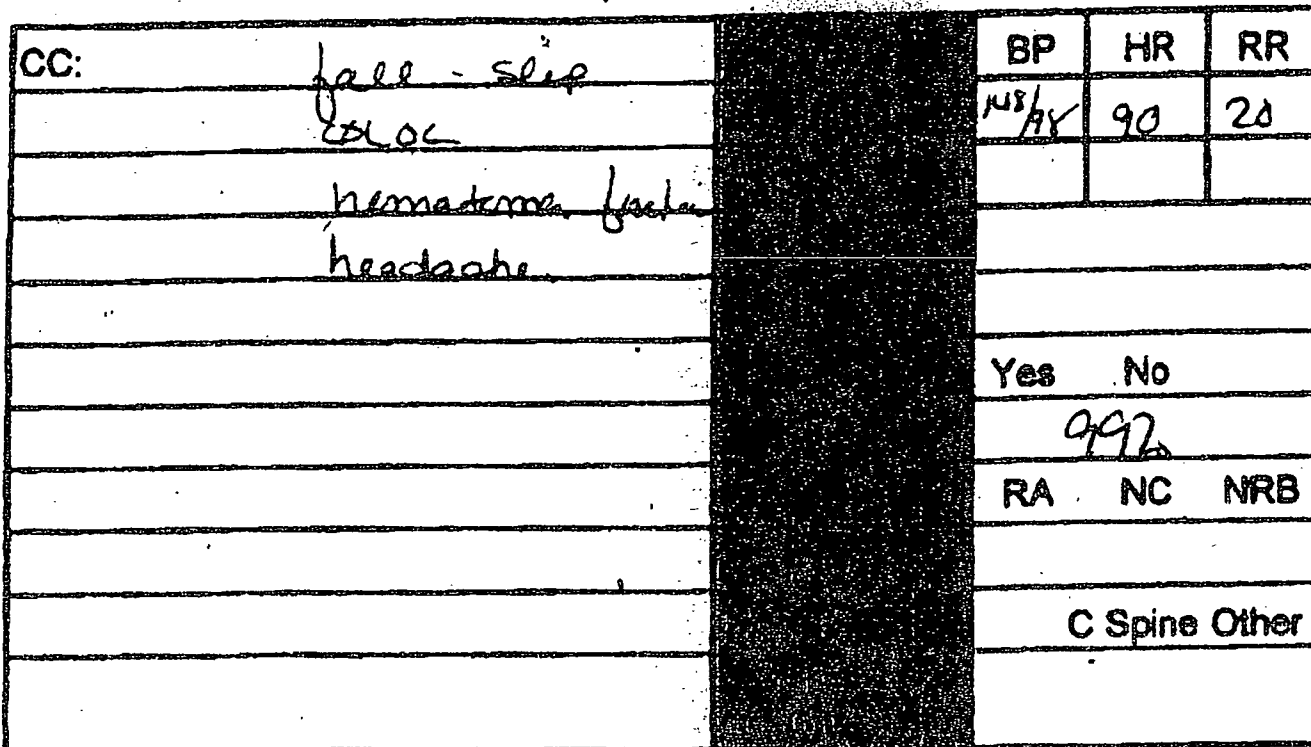 CC: fall - slip
LOC
hematoma
headache
BP HR RR
148/98 90 20
Yes No
99%
RA NC NRB
C Spine Other